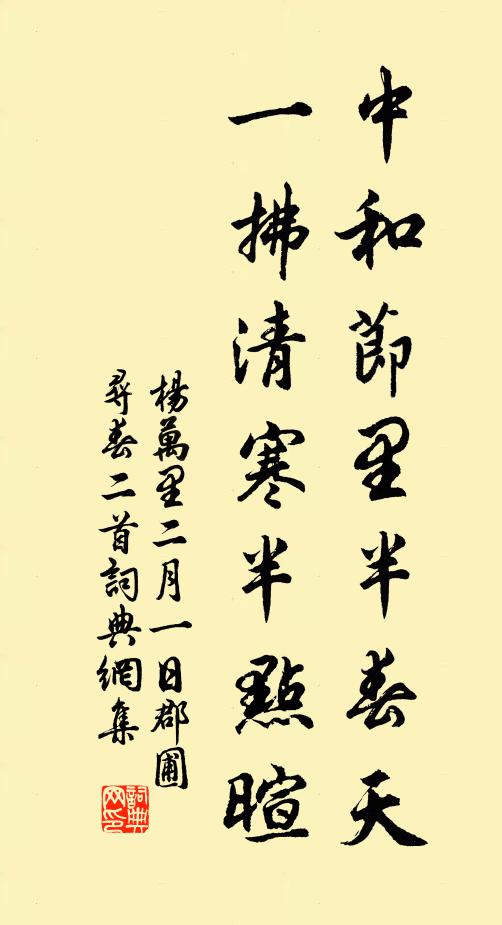 中和節里半春天
一拂清寒半點暄
楊萬里二月一日郡圃
尋春二首詞典網集
詞典网印